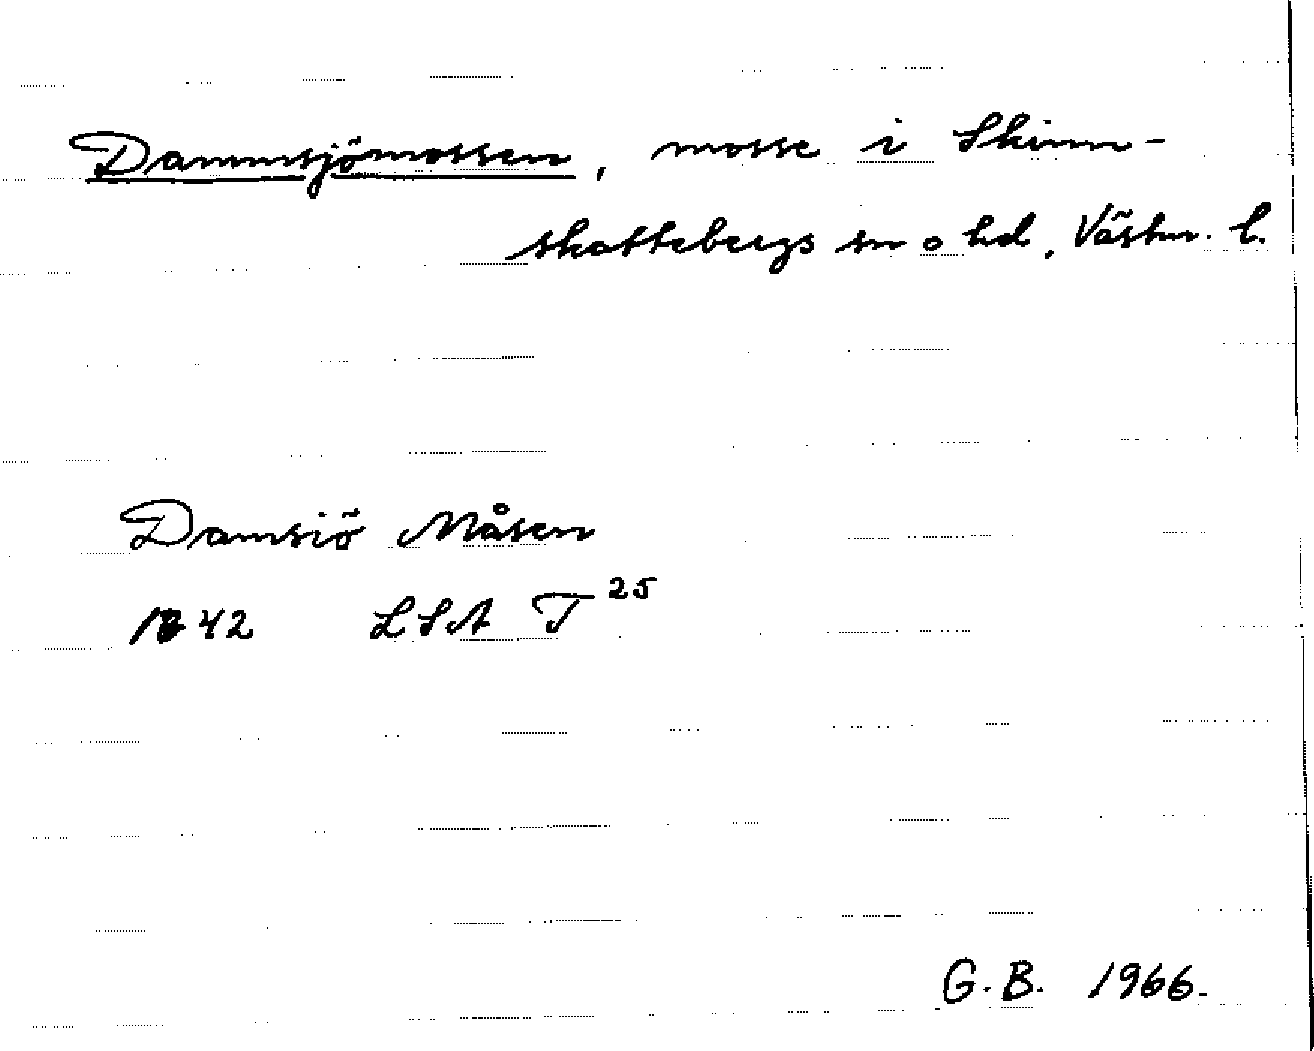 Dammsjömossen, mosse i Skinn-
skattebergs sn o hd, Västm. l.
Damsiö Måsen
42 LSA T 25
G.B. 1966.